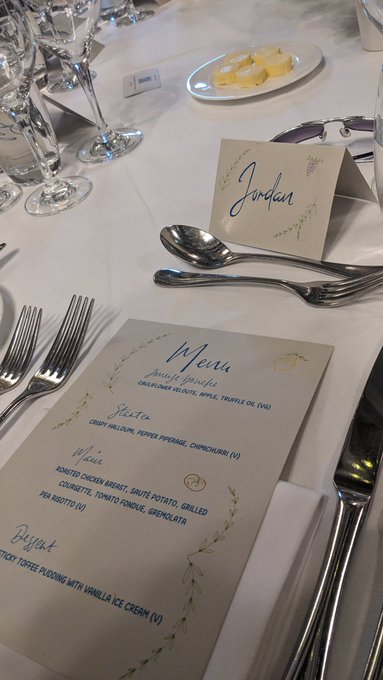 Jordan
Menu
Amuse bouche
CAULIFLOWER VELOUTE, APPLE, TRUFFLE OIL (VG)
Starter
CRISPY HALLOUMI, PEPPER PIPERAGE, CHIMICHURRI (V)
Main
ROASTED CHICKEN BREAST, SAUTÉ POTATO, GRILLED
COURGETTE, TOMATO FONDUE, GREMOLATA
PER RISOTTO (V)
Dessert
STICKY TOFFEE PUDDING WITH VANILLA ICE CREAM (V)